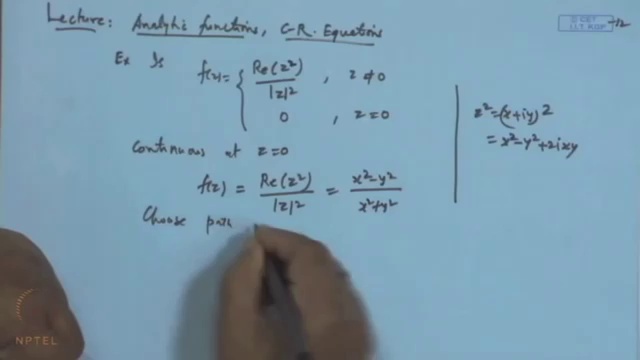 Lecture: Analytic functions, C-R. Equations
© CET
I.I.T. KGP
-12
Ex Is f(z) = { Re(z²)/|z|² , z ≠ 0
0 , z = 0
Continuous at z=0
f(z) = Re(z²)/|z|² = x²-y²/x²+y²
Choose
z² = (x+iy)²
= x²-y²+2ixy
NPTEL